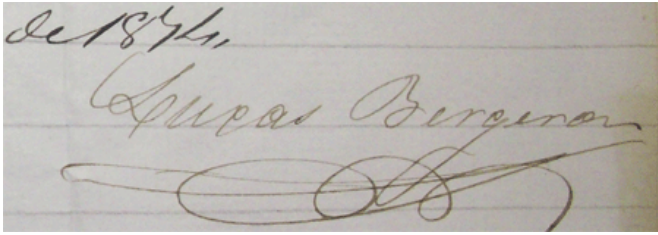 de 1874,
Lucas Bergeron